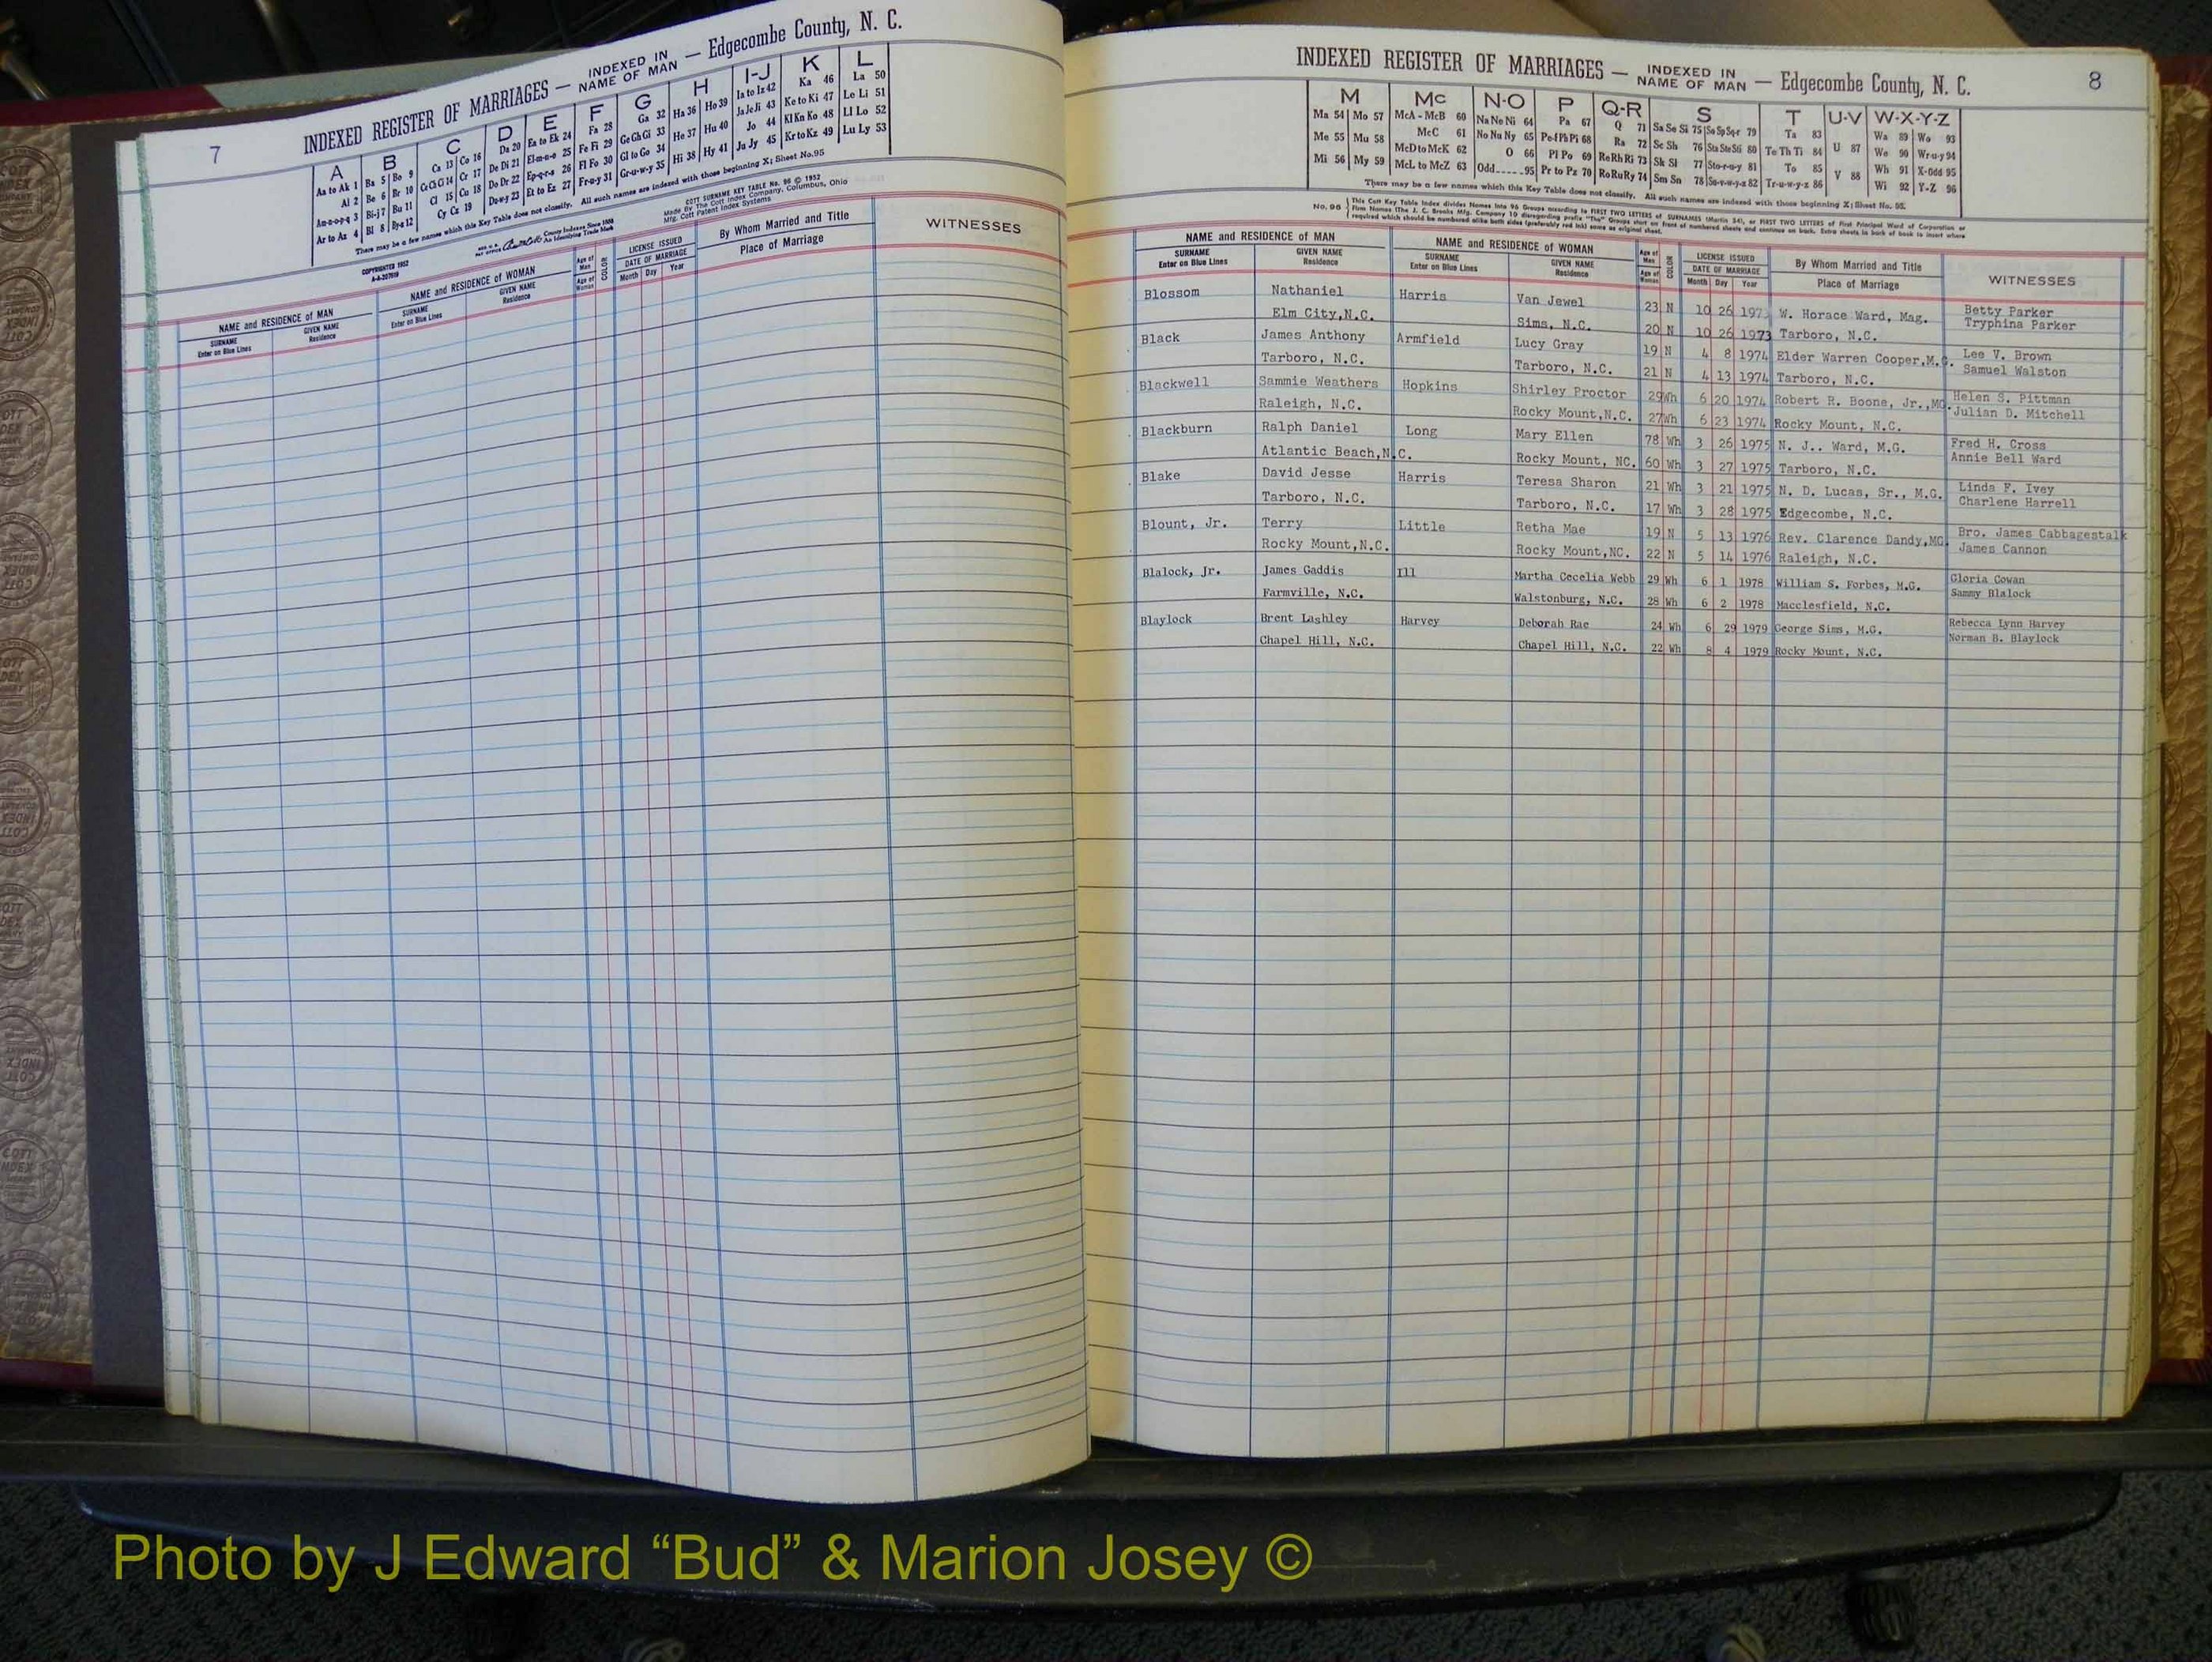 7
INDEXED REGISTER OF MARRIAGES — INDEXED IN NAME OF MAN — Edgecombe County, N. C.
A B C D E F G H I-J K L
Aa to Ak 1 Ba 5 Bo 9 Ca 13 Co 16 Da 20 Ea to Ek 24 Fa 28 Ga 32 Ha 36 Ho 39 Ia to Iz 42 Ka 46 La 50
Al 2 Be 6 Br 10 Ce Ch Ci 14 Cr 17 De Di 21 El-m-n-o 25 Fe Fi 29 Ge Gh Gi 33 He 37 Hu 40 Ja Je Ji 43 Ke to Ki 47 Le Li 51
Am-n-o-p-q 3 Bi-j 7 Bu 11 Cl 15 Cu 18 Do Dr 22 Ep-q-r-s 26 Fl Fo 30 Gl to Go 34 Hi 38 Hy 41 Jo 44 Kl Kn Ko 48 Ll Lo 52
Ar to Az 4 Bl 8 By-z 12 Cy Cz 19 Du-w-y 23 Et to Ez 27 Fr-u-y 31 Gr-u-w-y 35 Ju Jy 45 Kr to Kz 49 Lu Ly 53
There may be a few names which this Key Table does not classify. All such names are indexed with those beginning X; Sheet No. 95
COPYRIGHTED 1952
COTT SURNAME KEY TABLE No. 96 © 1952
Made By The Cott Index Company, Columbus, Ohio
Mfg. Cott Patent Index Systems
NAME and RESIDENCE of MAN NAME and RESIDENCE of WOMAN Age of Man COLOR LICENSE ISSUED By Whom Married and Title WITNESSES
SURNAME GIVEN NAME SURNAME GIVEN NAME Age of Woman DATE OF MARRIAGE Place of Marriage
Enter on Blue Lines Residence Enter on Blue Lines Residence Month Day Year
8
INDEXED REGISTER OF MARRIAGES — INDEXED IN NAME OF MAN — Edgecombe County, N. C.
M Mc N-O P Q-R S T U-V W-X-Y-Z
Ma 54 Mo 57 McA - McB 60 Na Ne Ni 64 Pa 67 Q 71 Sa Se Si 75 So Sp Sq-r 79 Ta 83 U 87 Wa 89 Wo 93
Me 55 Mu 58 McC 61 No Nu Ny 65 Pe-f Ph Pi 68 Ra 72 Sc Sh 76 Sta Ste Sti 80 Te Th Ti 84 V 88 We 90 Wr-u-y 94
Mi 56 My 59 McD to McK 62 O 66 Pl Po 69 Re Rh Ri 73 Sk Sl 77 Sto-r-u-y 81 To 85 Wh 91 X-Odd 95
McL to McZ 63 Odd 95 Pr to Pz 70 Ro Ru Ry 74 Sm Sn 78 Su-v-w-y-z 82 Tr-u-w-y-z 86 Wi 92 Y-Z 96
There may be a few names which this Key Table does not classify. All such names are indexed with those beginning X; Sheet No. 95.
NAME and RESIDENCE of MAN NAME and RESIDENCE of WOMAN Age of Man COLOR LICENSE ISSUED By Whom Married and Title WITNESSES
SURNAME GIVEN NAME SURNAME GIVEN NAME Age of Woman DATE OF MARRIAGE Place of Marriage
Enter on Blue Lines Residence Enter on Blue Lines Residence Month Day Year
Blossom Nathaniel Harris Van Jewel 23 N 10 26 1973 W. Horace Ward, Mag. Betty Parker
Elm City,N.C. Sims, N.C. 20 N 10 26 1973 Tarboro, N.C. Tryphina Parker
Black James Anthony Armfield Lucy Gray 19 N 4 8 1974 Elder Warren Cooper,M.G. Lee V. Brown
Tarboro, N.C. Tarboro, N.C. 21 N 4 13 1974 Tarboro, N.C. Samuel Walston
Blackwell Sammie Weathers Hopkins Shirley Proctor 29 Wh 6 20 1974 Robert R. Boone, Jr.,MG. Helen S. Pittman
Raleigh, N.C. Rocky Mount,N.C. 27 Wh 6 23 1974 Rocky Mount, N.C. Julian D. Mitchell
Blackburn Ralph Daniel Long Mary Ellen 78 Wh 3 26 1975 N. J.. Ward, M.G. Fred H. Cross
Atlantic Beach,N.C. Rocky Mount, NC. 60 Wh 3 27 1975 Tarboro, N.C. Annie Bell Ward
Blake David Jesse Harris Teresa Sharon 21 Wh 3 21 1975 N. D. Lucas, Sr., M.G. Linda F. Ivey
Tarboro, N.C. Tarboro, N.C. 17 Wh 3 28 1975 Edgecombe, N.C. Charlene Harrell
Blount, Jr. Terry Little Retha Mae 19 N 5 13 1976 Rev. Clarence Dandy,MG Bro. James Cabbagestalk
Rocky Mount,N.C. Rocky Mount,NC. 22 N 5 14 1976 Raleigh, N.C. James Cannon
Blalock, Jr. James Gaddis Ill Martha Cecelia Webb 29 Wh 6 1 1978 William S. Forbes, M.G. Gloria Cowan
Farmville, N.C. Walstonburg, N.C. 28 Wh 6 2 1978 Macclesfield, N.C. Sammy Blalock
Blaylock Brent Lashley Harvey Deborah Rae 24 Wh 6 29 1979 George Sims, M.G. Rebecca Lynn Harvey
Chapel Hill, N.C. Chapel Hill, N.C. 22 Wh 8 4 1979 Rocky Mount, N.C. Norman B. Blaylock
Photo by J Edward “Bud” & Marion Josey ©